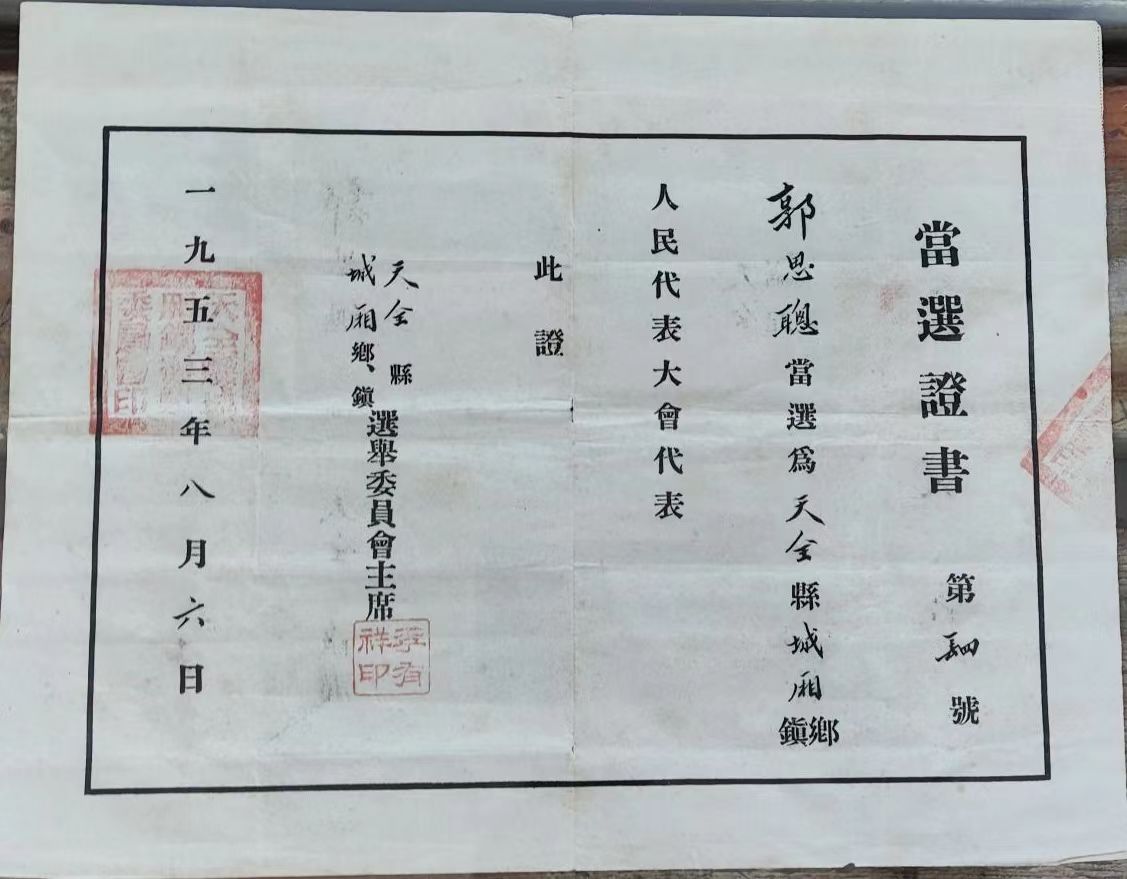 當選證書 第 號
郭思聰當選爲天全縣城廂鄉鎮
人民代表大會代表
此證
天全縣
城廂鄉、鎮
選舉委員會主席
有
祥印
一九五三年八月六日